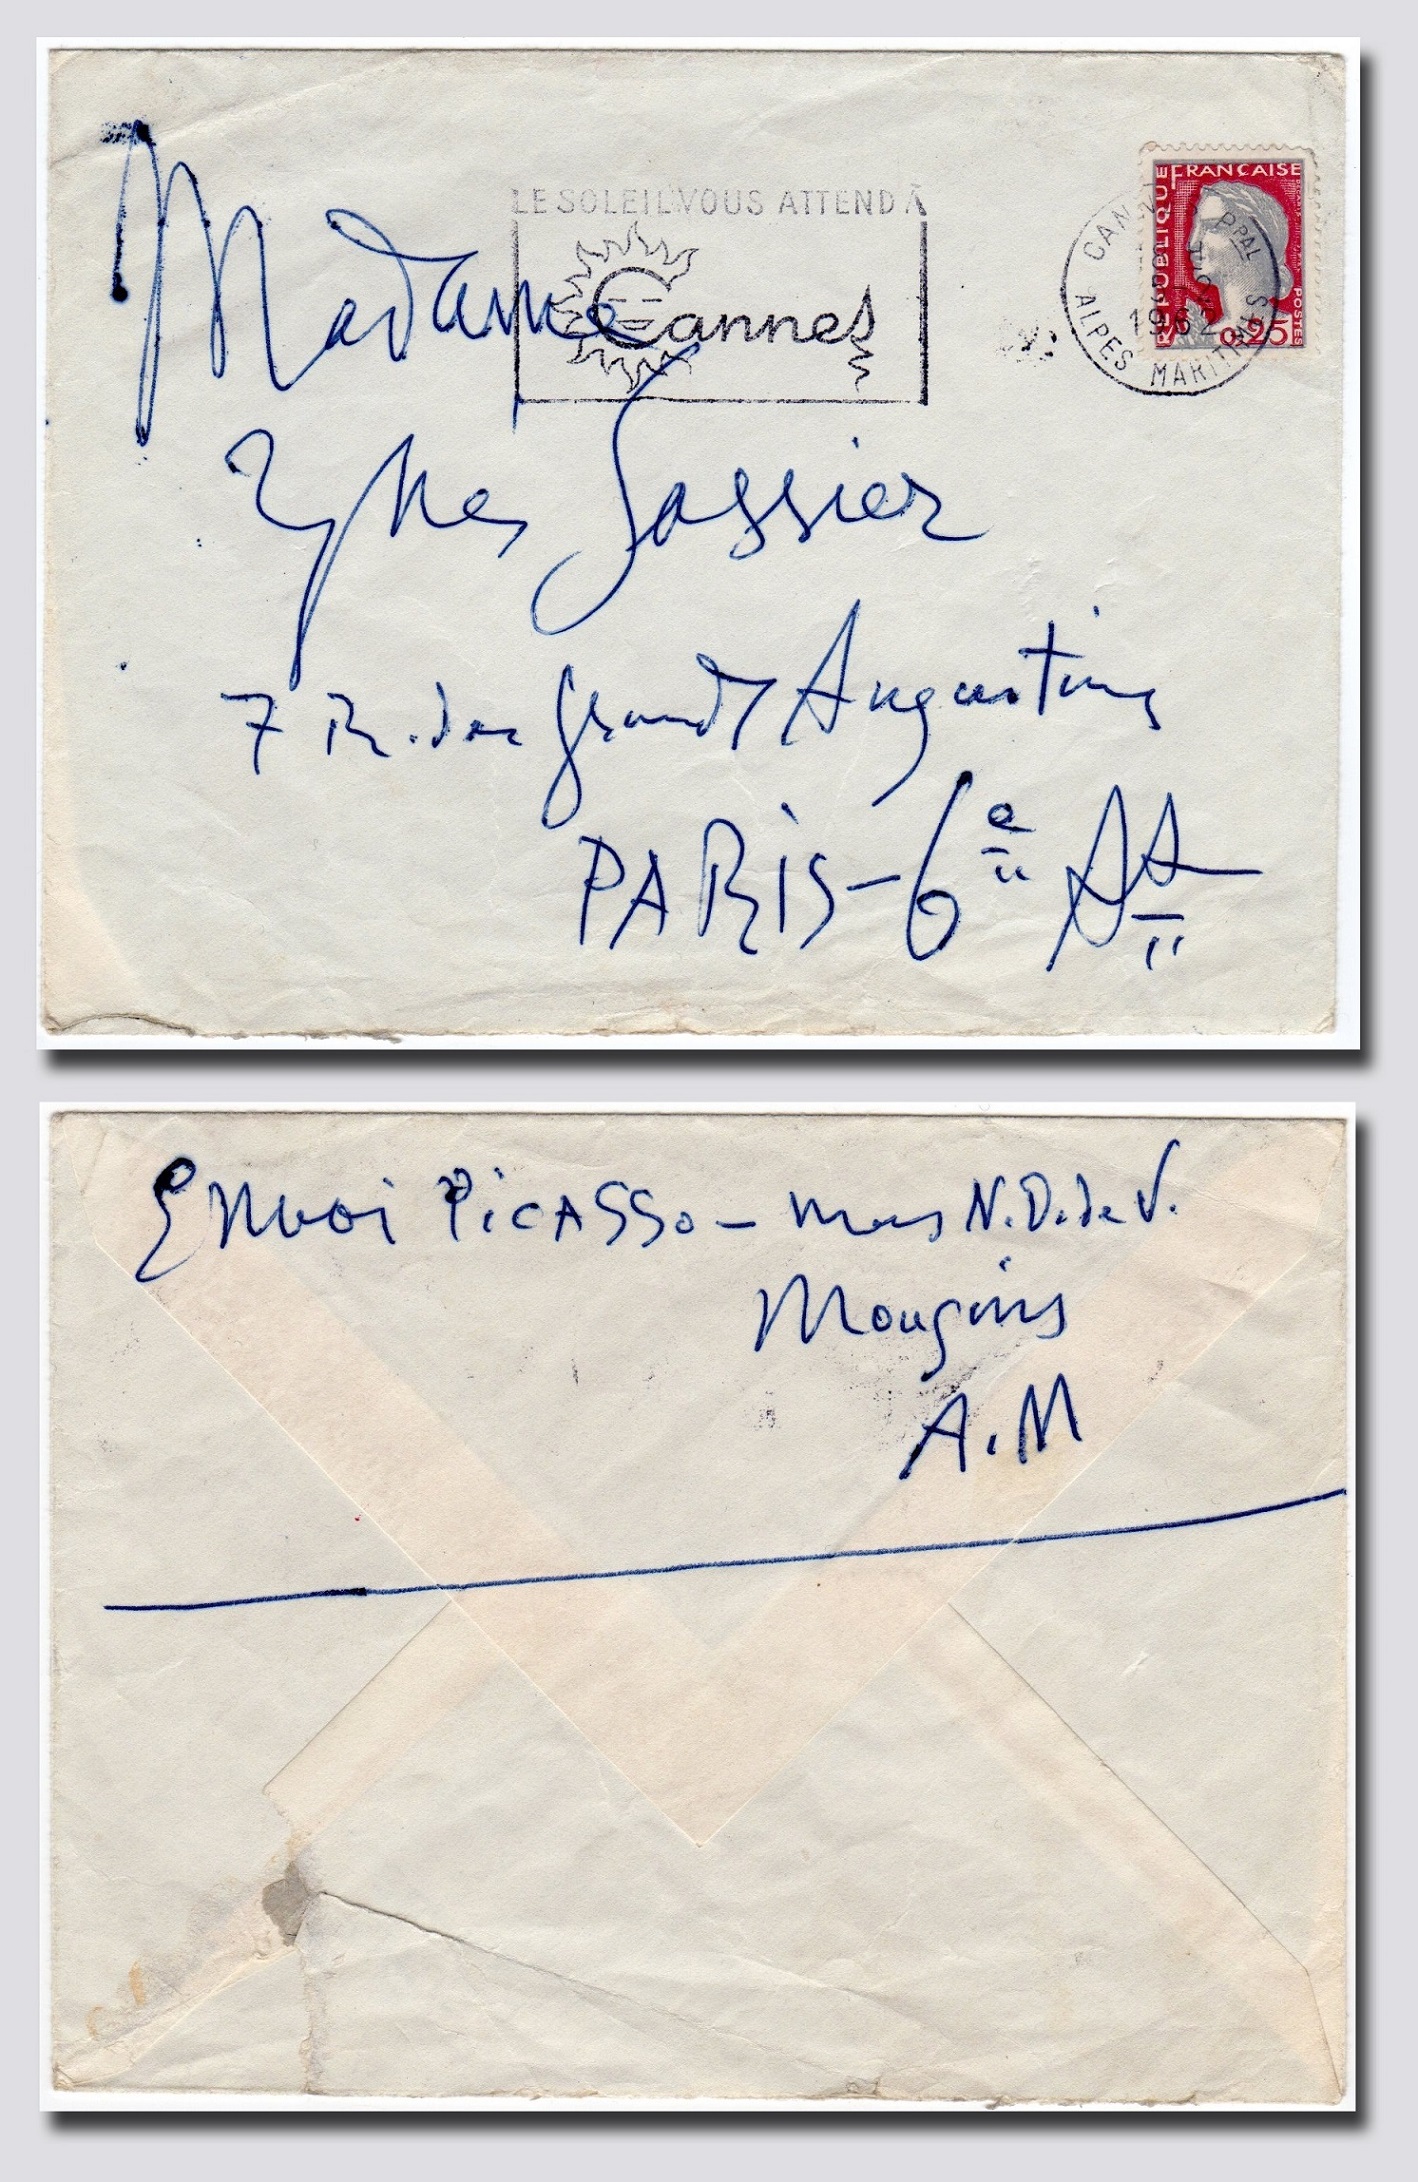 LE SOLEIL VOUS ATTEND À
Cannes
RÉPUBLIQUE FRANÇAISE
POSTES
0,25
CANNES PPAL
1962
ALPES MARITIMES
Madame
Ynes Sassier
7 R. des grands Augustins
PARiS - 6e Att
Envoi PiCASSo - mas N.D. de V.
Mougins
A.M